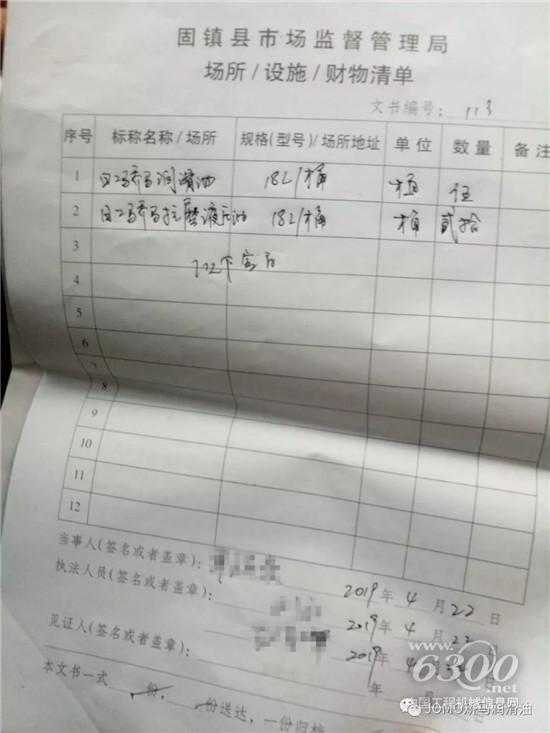 固镇县市场监督管理局
场所/设施/财物清单
文书编号：113
序号 标称名称/场所 规格(型号)/场所地址 单位 数量 备注
1 润滑油 18L/桶 桶 伍
2 抗磨液压油 18L/桶 桶 贰拾
3
以下空白
4
5
6
7
8
9
10
11
12
当事人(签名或者盖章)：
2019年4月22日
执法人员(签名或者盖章)：
2019年4月22日
2019年4月22日
见证人(签名或者盖章)：
年 月 日
本文书一式 份， 份送达，一份归档
6300.net
中国工程机械信息网
JOMO娇马润滑油